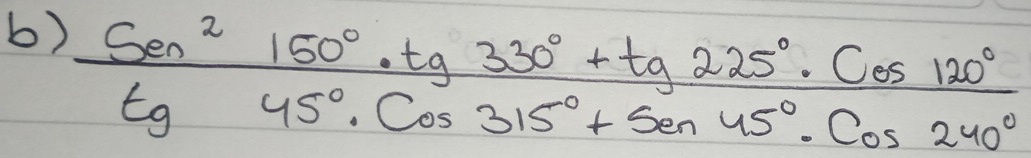 b) Sen² 150°. tg 330° + tg 225°. Cos 120°
tg 45°. Cos 315° + Sen 45°. Cos 240°